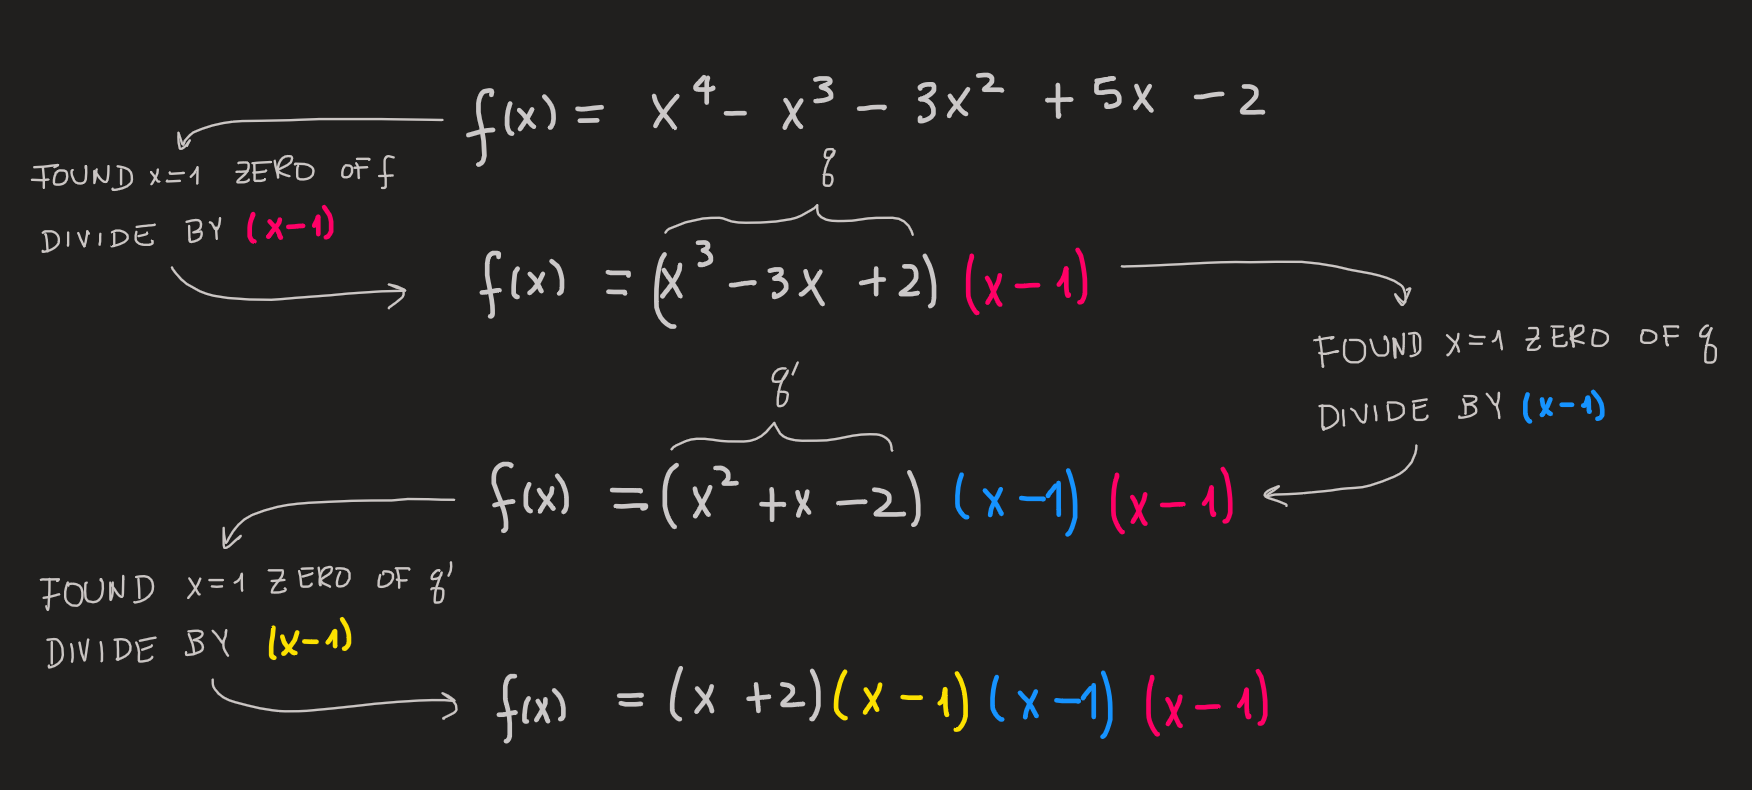 f(x) = x⁴ - x³ - 3x² + 5x - 2
FOUND x=1 ZERO OF f
DIVIDE BY (x-1)
q
f(x) = (x³ - 3x + 2) (x-1)
FOUND x=1 ZERO OF q
DIVIDE BY (x-1)
q'
f(x) = (x² + x - 2) (x-1) (x-1)
FOUND x=1 ZERO OF q'
DIVIDE BY (x-1)
f(x) = (x + 2) (x - 1) (x-1) (x-1)